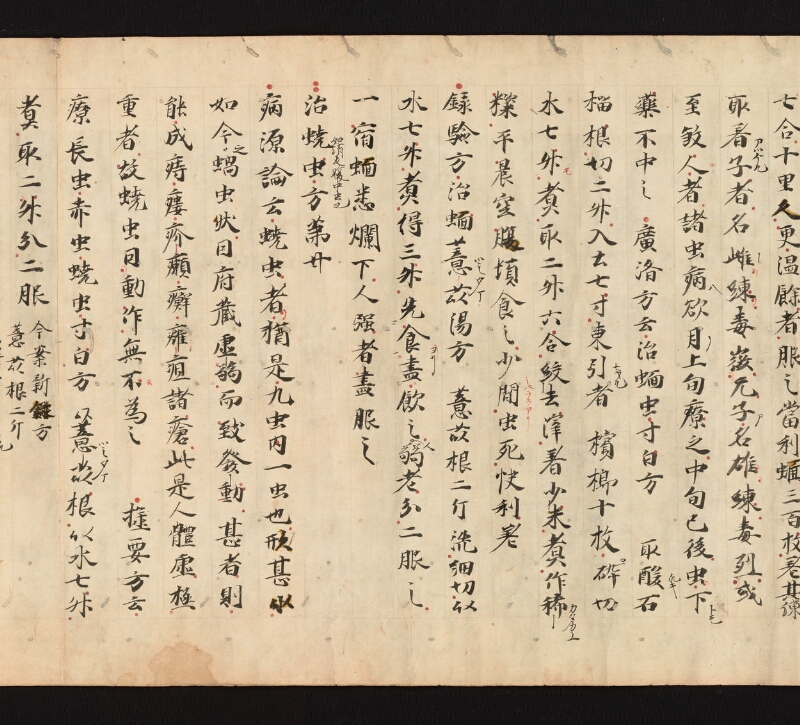 七合十里久更温餘者服之當利蛔三百枚老其練
取着子者名雌練毒薮无子名雄練毒烈或
至敛人者諸虫病欲月上旬療之中旬已後虫下
藥不中之 廣洛方云治蛔虫寸白方 取酸石
榴根切二升入土七寸東引者 檳榔十枚碎切
水七升煮取二升六合絞去滓着少米煮作稀
糜平晨空腹頓食之少間虫死快利差
録驗方治蛔薏苡湯方 薏苡根二斤洗細切以
水七升煮得三升先食盡飲之弱老分二服之
一宿蛔悉爛下人强者盡服之
治蟯虫方第廿
病源論云蟯虫者猶是九虫内一虫也形甚小
如今之蝸虫狀因府藏虚弱而致發動甚者則
能成痔瘻疥癩癬癰疽諸瘡此是人體虚極
重者故蟯虫因動作無不為之 極要方云
療長虫赤虫蟯虫寸白方 以薏苡根以水七升
煮取二升分二服
今案新録方
薏苡根二斤